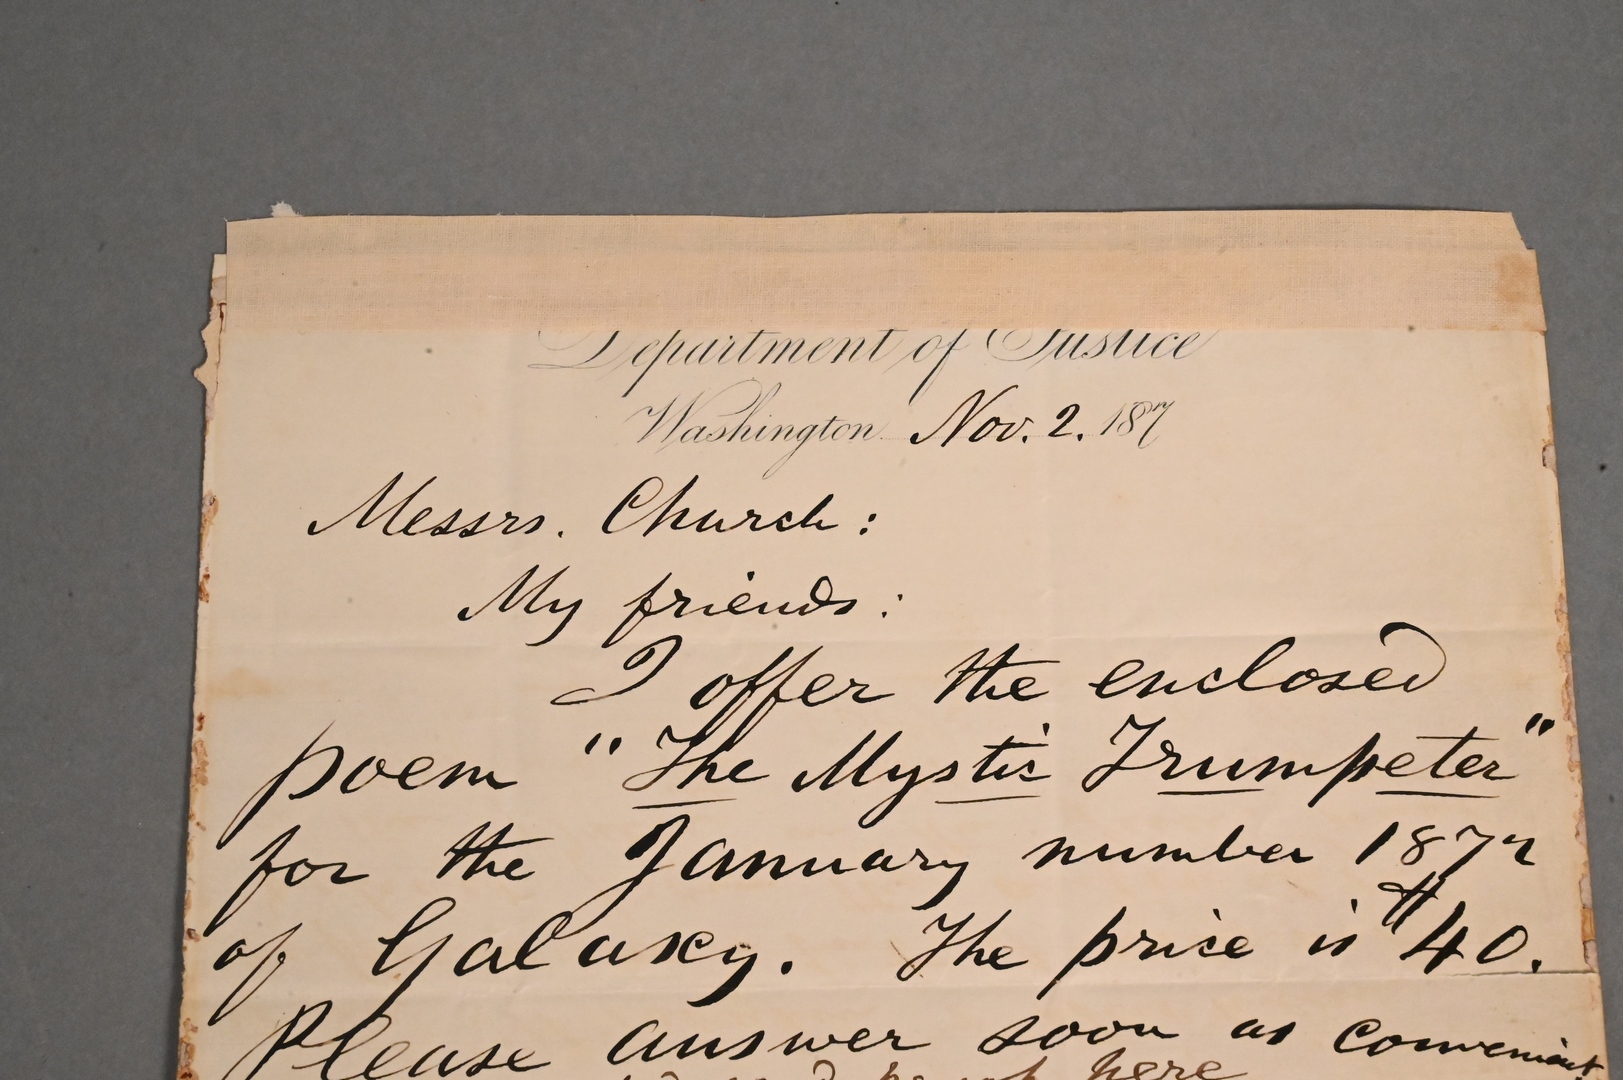 Department of Justice
Washington Nov. 2. 187
Messrs. Church:
My friends:
I offer the enclosed
poem "The Mystic Trumpeter"
for the January number 1872
of Galaxy. The price is $40.
Please answer soon as convenient
here